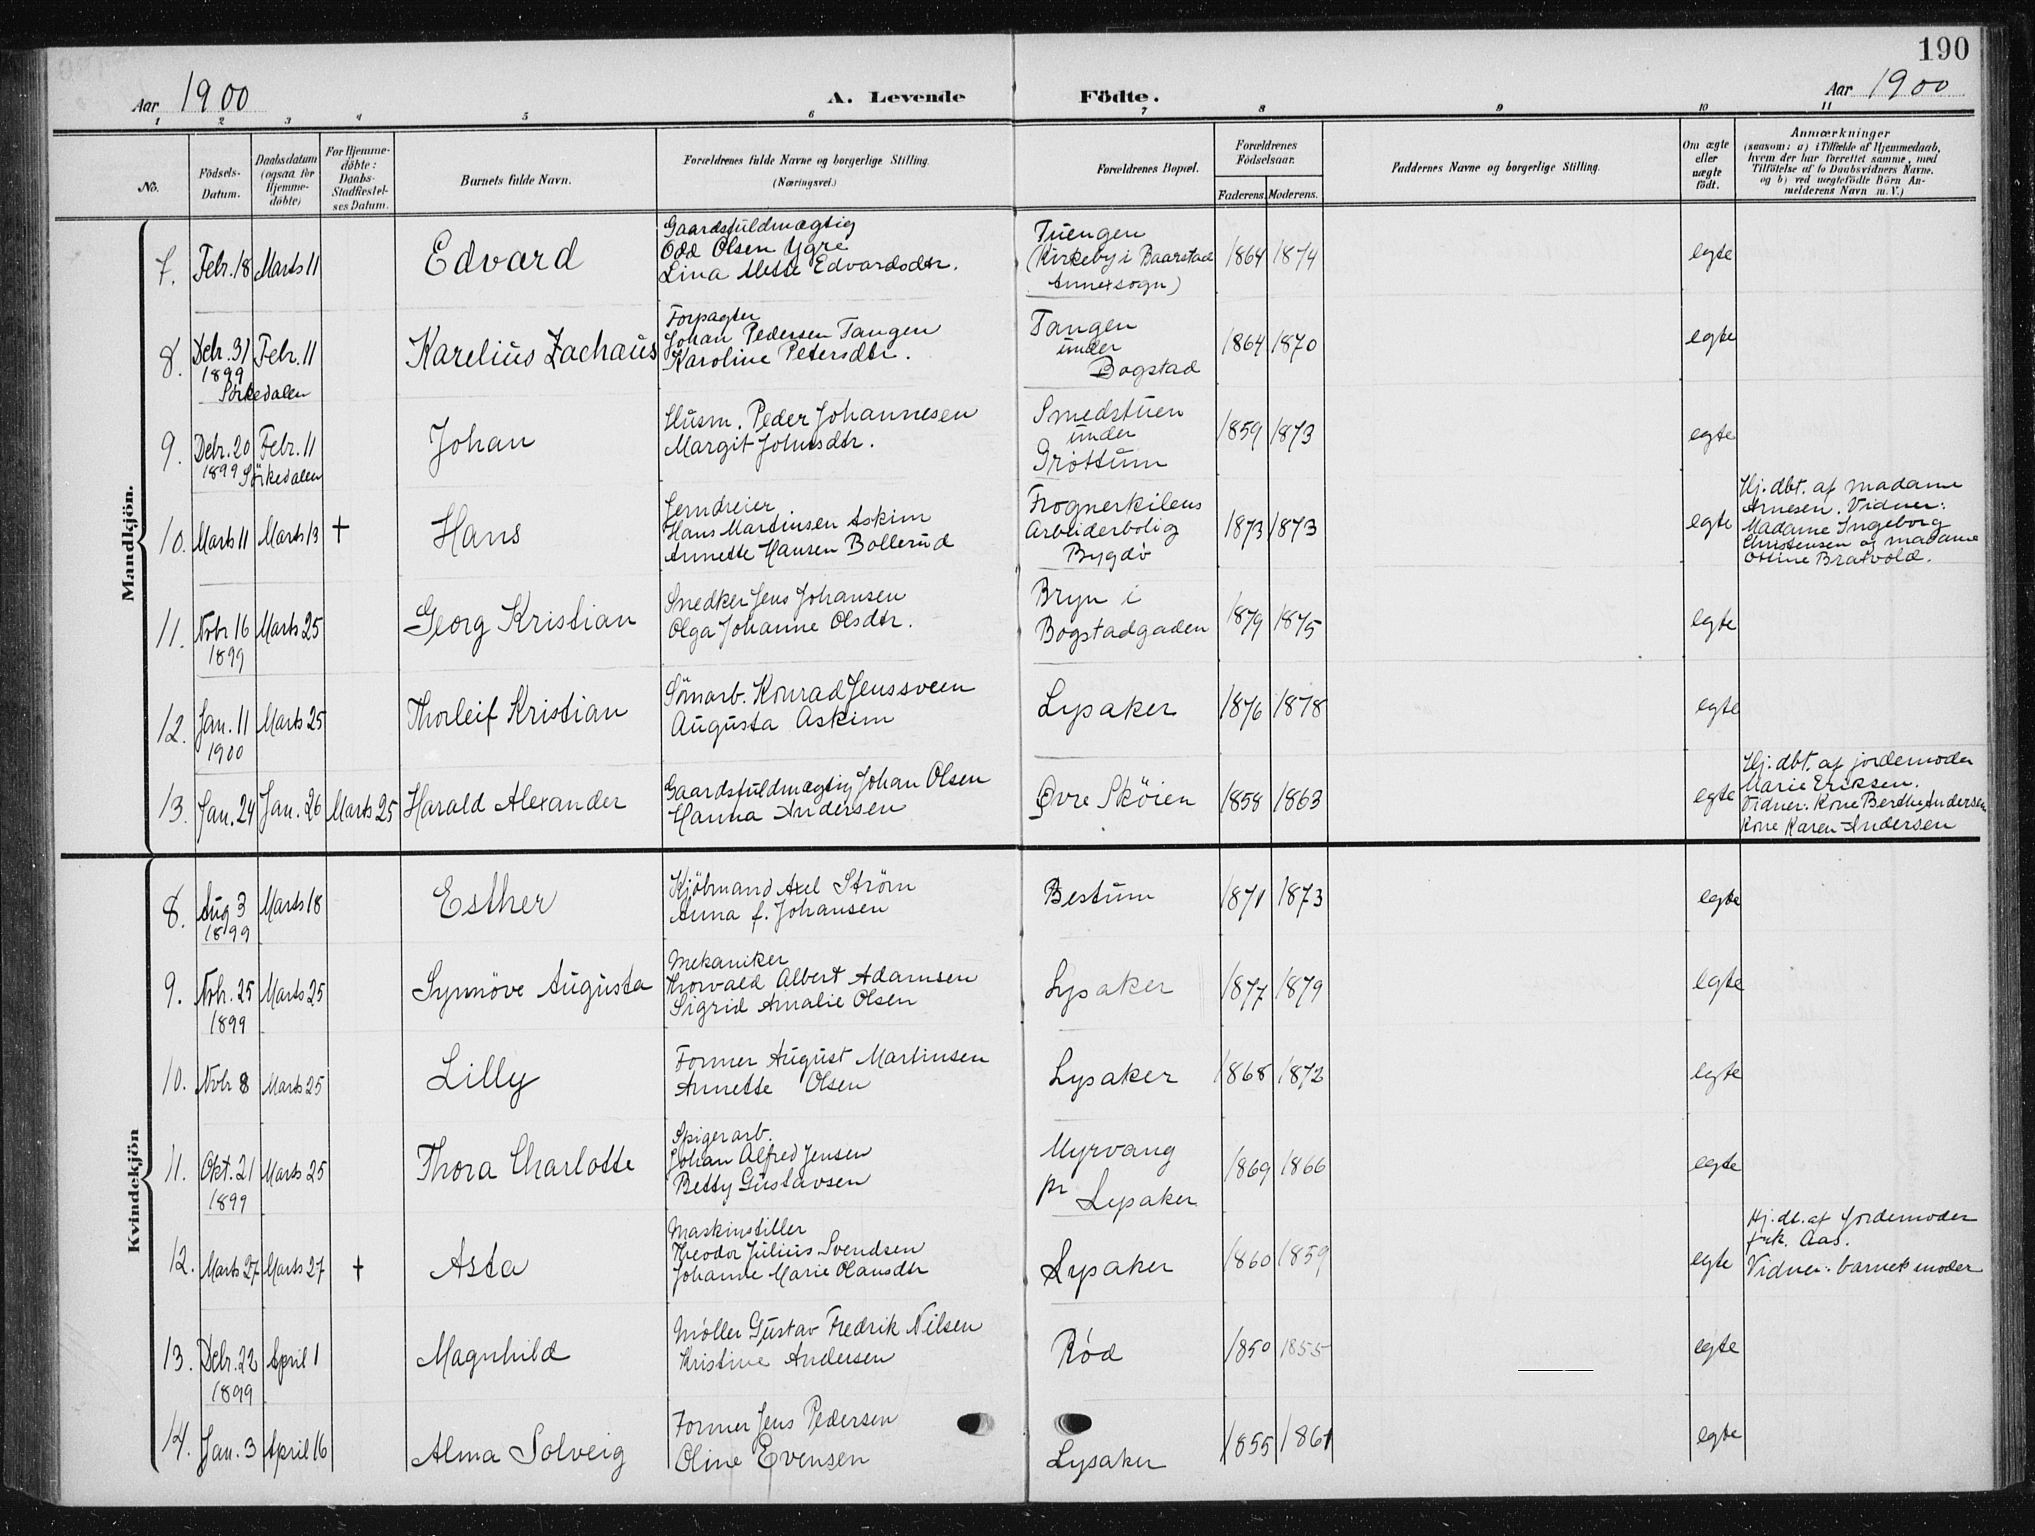 190
Aar 1900
A. Levende Födte.
Aar 1900
1 2 3 4 5 6 7 8 9 10 11
No.
Födsels-Datum.
Daabsdatum (ogsaa for Hjemme-döbte)
For Hjemme-döbte: Daabs-Stadfæstel-ses Datum.
Barnets fulde Navn.
Forældrenes fulde Navne og borgerlige Stilling.
(Næringsvei.)
Forældrenes Bopæl.
Forældrenes Födselsaar.
Faderens. Moderens.
Faddernes Navne og borgerlige Stilling.
Om ægte eller uægte födt.
Anmærkninger
(saasom: a) i Tilfælde af Hjemmedaab,
hvem der har forrettet samme, med
Tilföielse af to Daabsvidners Navne.
og b) ved uægtefödte Börn An-
melderens Navn m. V.)
Mandkjön.
7. Febr. 18 Marts 11 Edvard
Gaardsfuldmægtig
Odd Olsen Ygre
Lina Mette Edvardsdtr.
Tuengen
(Kirkeby i Baarstad
Annexsogn)
1864 1874 egte
8. Debr. 31 Febr. 11
1899
Sörkedalen
Karelius Zachaus
Forpagter
Johan Pedersen Tangen
Karoline Petersdtr.
Tangen
under
Bogstad
1864 1870 egte
9. Debr. 20 Febr. 11
1899 Sörkedalen
Johan
Husm. Peder Johannesen
Margit Johnsdtr.
Smedstuen
under
Gröttum
1859 1873 egte
10. Marts 11 Marts 13 † Hans
Jerndreier
Hans Martinsen Askim
Annette Hansen Bollerud
Frognerkilens
Arbeiderbolig
Bygdö
1873 1873 egte
Hj. dbt. af Madame
Arnesen. Vidner:
Madame Ingeborg
Christensen og madame
Otline Bratvold.
11. Novbr 16 Marts 25
1899
Georg Kristian
Snedker Jens Johansen
Olga Johanne Olsdtr.
Bryn i
Bogstadgaden
1879 1875 egte
12. Jan. 11 Marts 25
1900
Thorleif Kristian
Sömarb. Konrad Jenssveen
Augusta Askim
Lysaker
1876 1878 egte
13. Jan. 24 Jan. 26 Marts 25 Harald Alexander
Gaardsfuldmægtig Johan Olsen
Hanna Andersen
Övre Sköien
1858 1863 egte
Hj. dbt. af jordemoder
Marie Ericksen.
Vidner: Kone Berthe Andersen
Kone Karen Andersen
Kvindekjön
8. Aug 3 Marts 18
1899
Esther
Kjöbmand Axel Ström
Anna f. Johansen
Bestum
1871 1873 egte
9. Nvbr. 25 Marts 25
1899
Synnöve Augusta
Mekaniker
Thorvald Albert Adamsen
Sigrid Amalie Olsen
Lysaker
1877 1879 egte
10. Nvbr 8 Marts 25 Lilly
Former August Martinsen
Annette Olsen
Lysaker
1868 1872 egte
11. Okt. 21 Marts 25
1899
Thora Charlotte
Spigerarb.
Johan Alfred Jensen
Betty Gustavsen
Myrvang
pr Lysaker
1869 1866 egte
12. Marts 27 Marts 27 † Asta
Maskinstiller
Theodor Julius Svendsen
Johanne Marie Olausdtr
Lysaker
1860 1859 egte
Hj. db. af Jordemoder
frk. Aas.
Vidner: barnets moder
13. Debr. 22 April 1
1899
Magnhild
Möller Gustav Fredrik Nilsen
Kristine Andersen
Röd
1850 1855 egte
14. Jan. 3 April 16 Alma Solveig
Former Jens Pedersen
Oline Evensen
Lysaker
1855 1861 egte